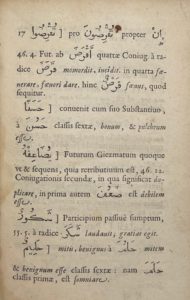 17 ] تُقْرِضُوا pro تُقْرِضُونَ propter إِنْ
46. 4. Fut. ab أَقْرَضَ quartæ Coniug. à ra-
dice قَرَضَ momordit, incidit. in quarta fæ-
nerare, fæneri dare. hinc قَرْضٌ fænus, quod
sequitur.
حَسَنًا ] convenit cum suo Substantivo,
à حَسُنَ classis sextæ, bonum, & pulchrum
esse.
يُضَاعِفْهُ ] Futurum Giezmatum quoque
ve & sequens, quia retributionem est, 46. 12.
Coniugationis secundæ, in qua significat du-
plicare, in prima autem ضَعُفَ est debilem
esse.
شَكُورٌ ] Participium passivè sumptum,
55. 5. à radice شَكَرَ laudavit, gratias egit.
حَلِيمٌ ] mitis, benignus à حَلُمَ mitem
& benignum esse classis sextæ: nam حَلَمَ
classis primæ, est somniare.